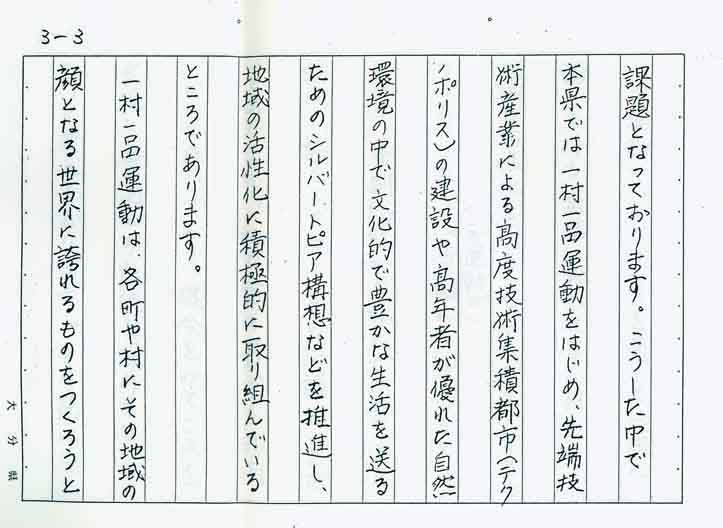 3-3
課題となっております。こうした中で
本県では一村一品運動をはじめ、先端技
術産業による高度技術集積都市(テク
ノポリス)の建設や高年者が優れた自然
環境の中で文化的で豊かな生活を送る
ためのシルバートピア構想などを推進し、
地域の活性化に積極的に取り組んでいる
ところであります。
一村一品運動は、各町や村にその地域の
顔となる世界に誇れるものをつくろうと
大分県